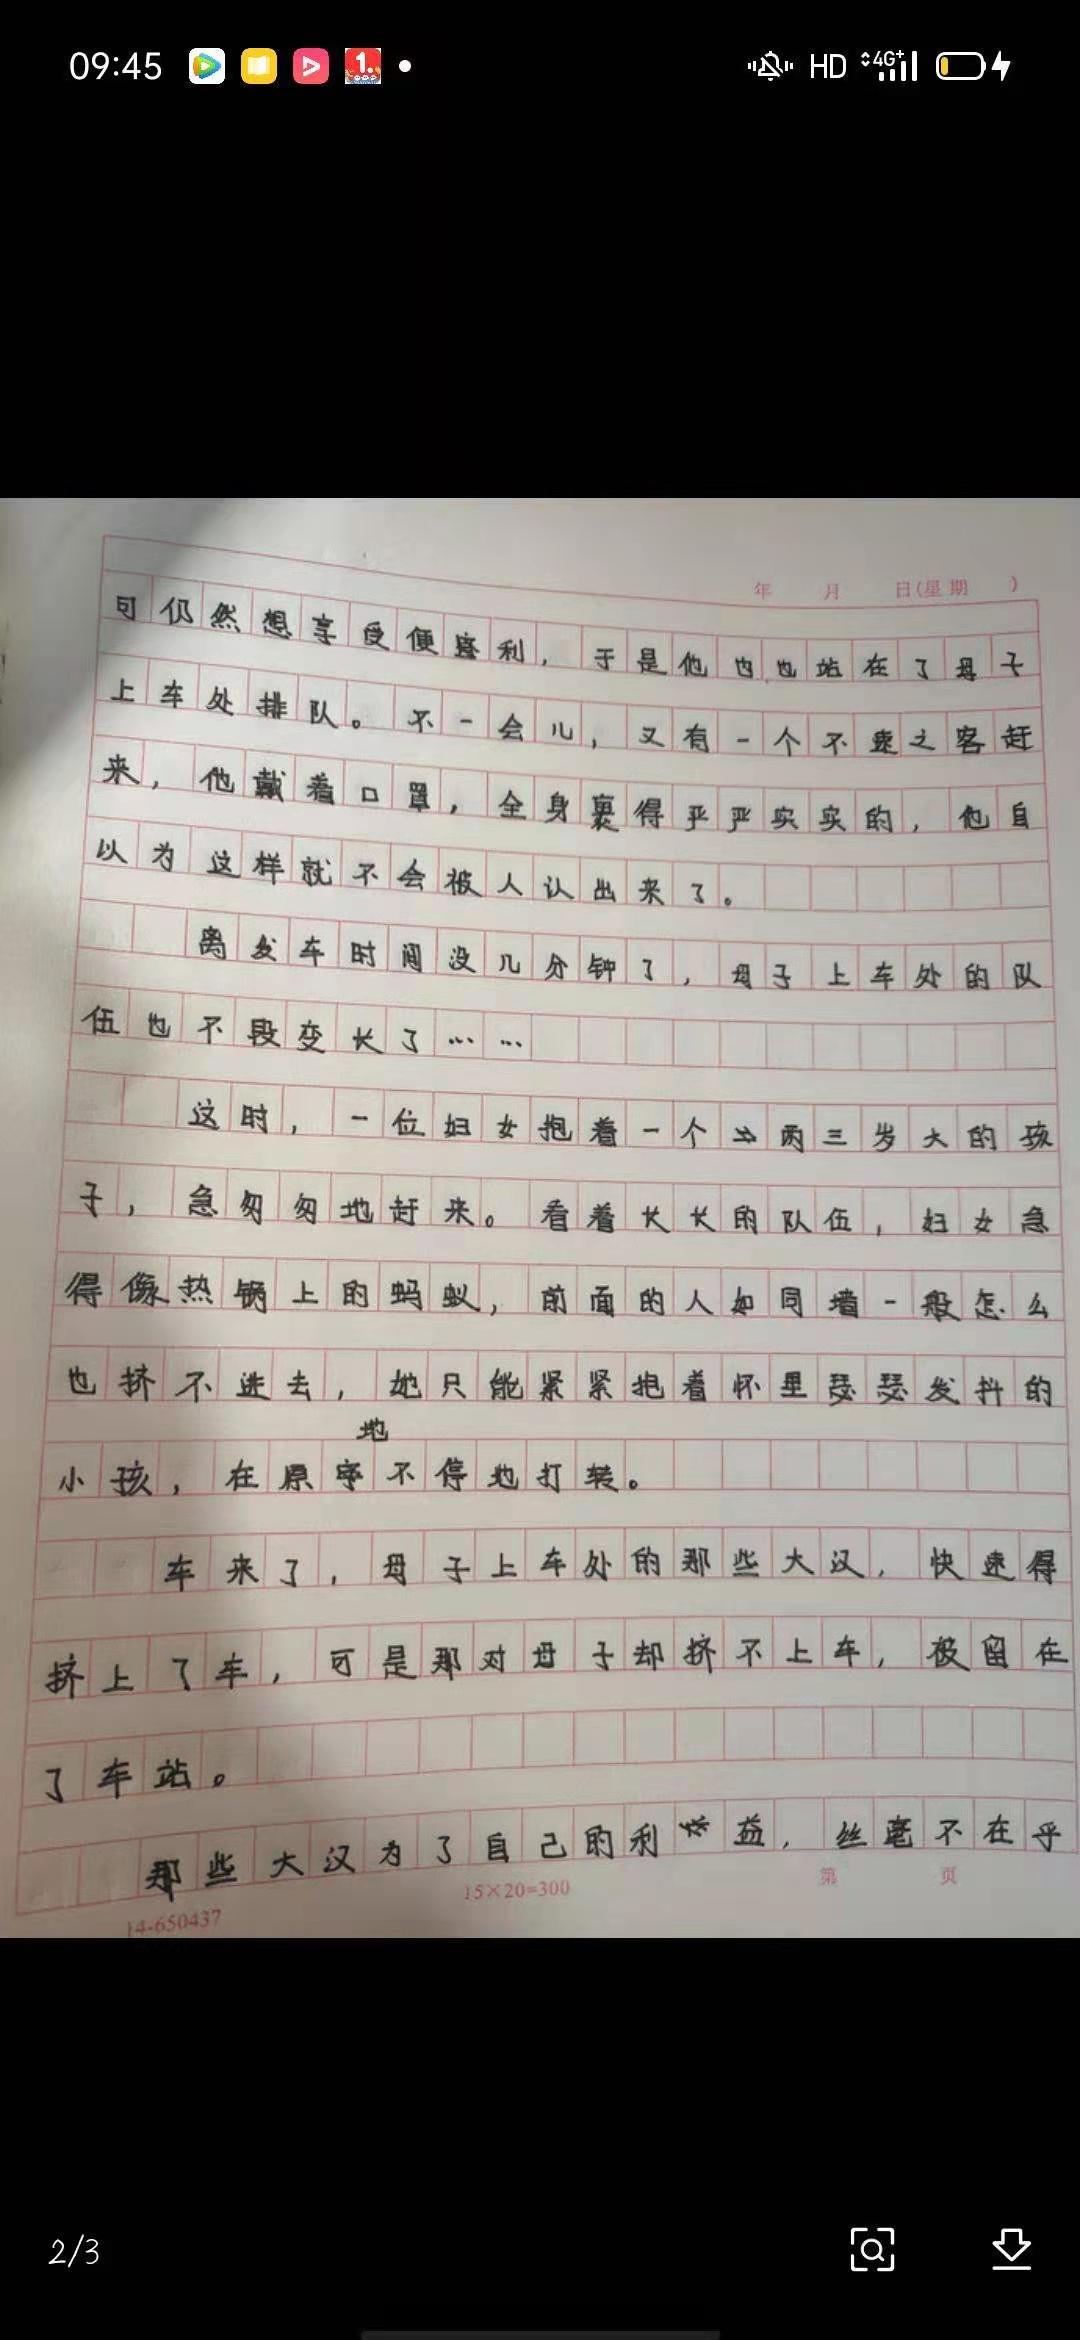 09:45
HD 4G+
年 月 日(星期 )
可仍然想享受便利，于是他也也站在了母子
上车处排队。不一会儿，又有一个不速之客赶
来，他戴着口罩，全身裹得严严实实的，他自
以为这样就不会被人认出来了。
离发车时间没几分钟了，母子上车处的队
伍也不段变长了……
这时，一位妇女抱着一个两三岁大的孩
子，急匆匆地赶来。看着长长的队伍，妇女急
得像热锅上的蚂蚁，前面的人如同墙一般怎么
也挤不进去，她只能紧紧抱着怀里瑟瑟发抖的
地
小孩，在原不停地打转。
车来了，母子上车处的那些大汉，快速得
挤上了车，可是那对母子却挤不上车，被留在
了车站。
那些大汉为了自己的利益，丝毫不在乎
14-650437
15×20=300
第 页
2/3